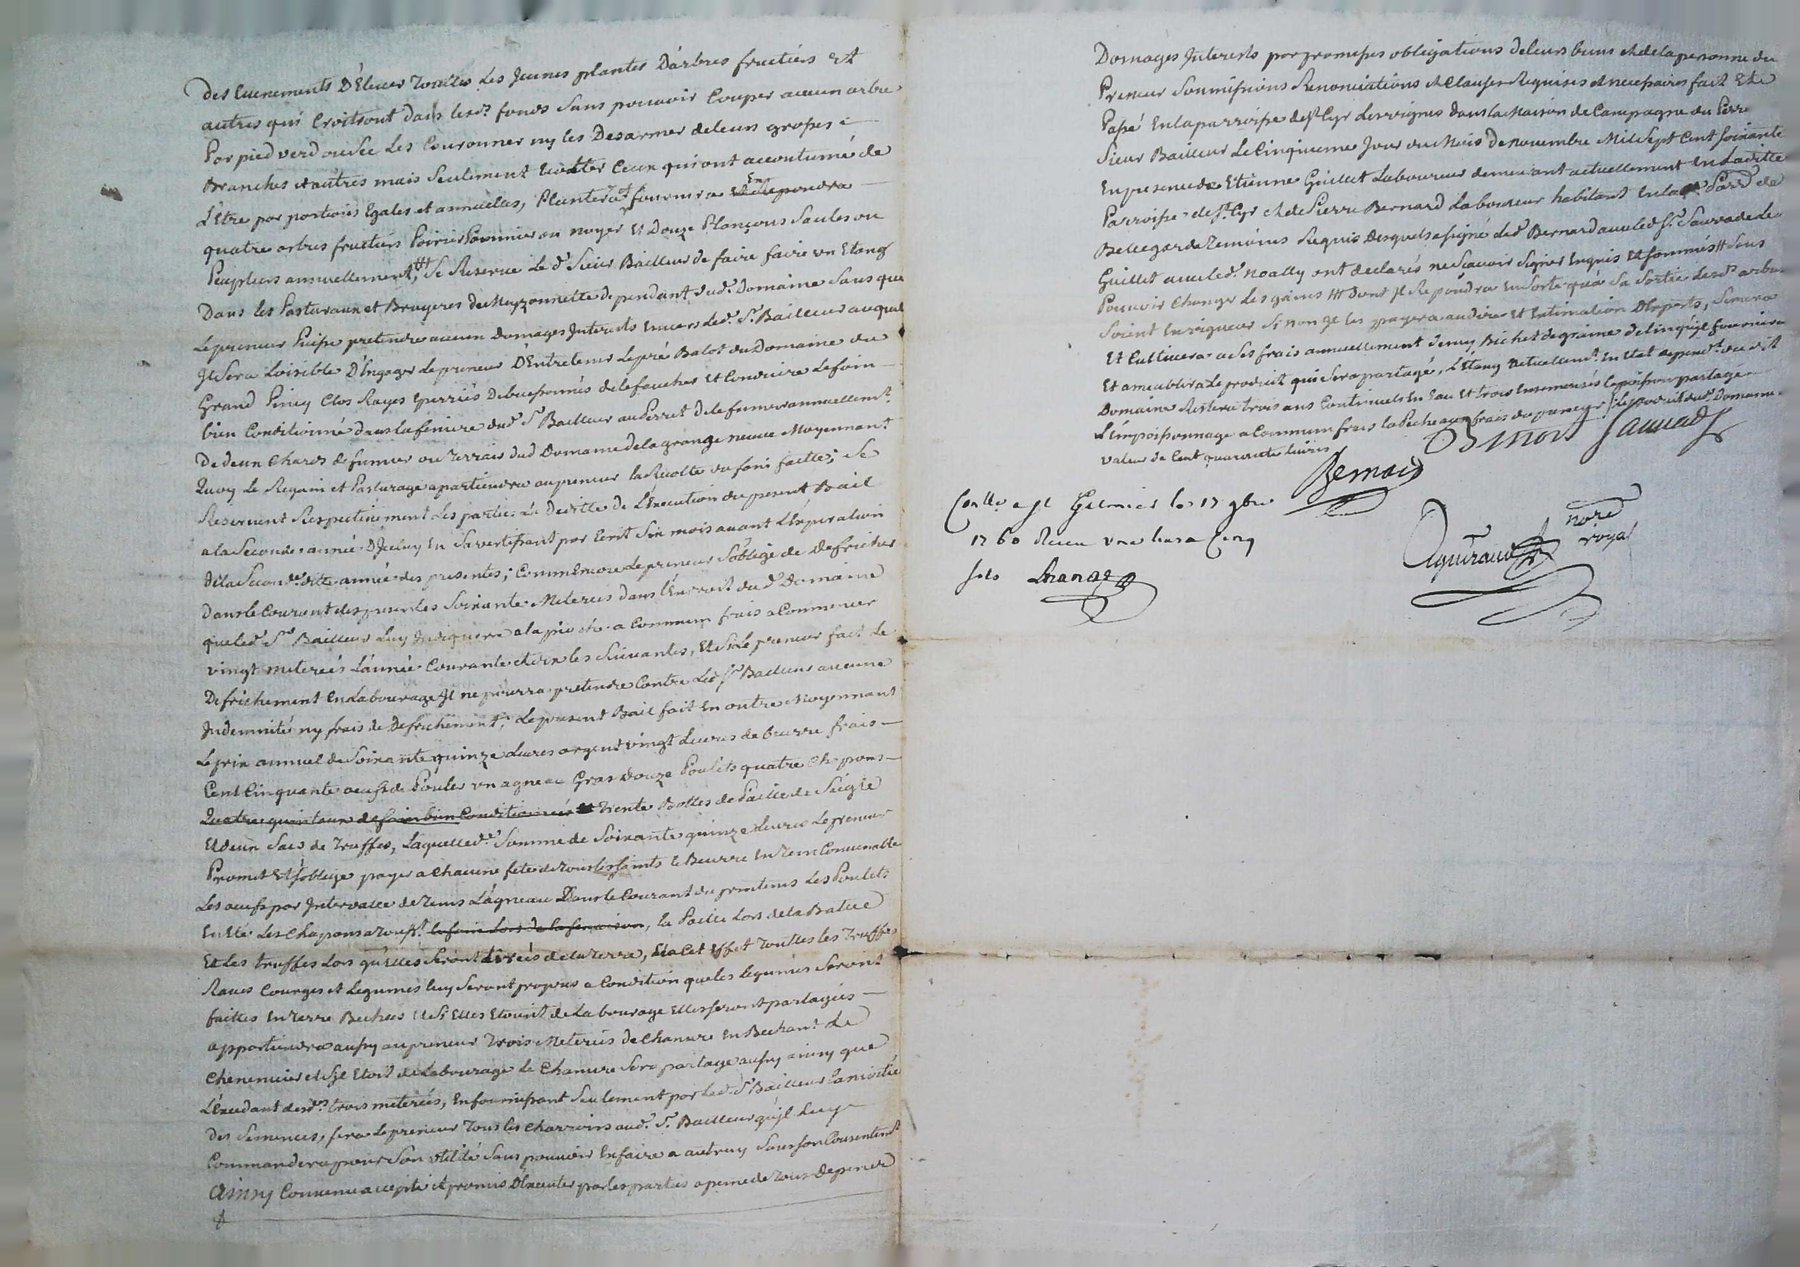 Des Evenements D'Elever touttes les Jeunes plantes D'arbres fruitiers Et
autres qui Croitront dans lesd. fonds sans pouvoir Couper aucun arbre
Par pied verd ou sec les Couronner ny les Desarmer de leurs grosses
Branches et autres mais seulement Ceux qui ont accoutumé de
L'être par portions Egales et annuelles, Plantera fournira Et En Repondra
quatre arbres fruitiers Poirier Pommier ou noyer Et Douze Plançons Saules ou
Peupliers annuellement, Se Reserve Le d. Sieur Bailleur de faire faire un Etang
Dans les Pasturaux et Bruyeres de dependant dud. Domaine Sans que
Le preneur Puisse pretendre aucun Domages Interests Envers Led. Sr. Bailleur auquel
Il Sera Loisible D'Engager Le preneur D'Entretenir Le pré du Domaine du
Grand Piney Clos Rayes de le faucher Et Conduire Le foin
bien Conditionné dans la feniere dud. Sr. Bailleur au Perret de le fumer annuellemt.
De deux Chars de fumier ou terrais dud Domaine de la grange neuve Moyennant
Quoy Le Regain et Pasturage apartiendra au preneur la Recolte du foin faitte; Se
Reservent Respectivement Les parties Le Desister de L'Execution du present Bail
a la Seconde année D'Iceluy En S'avertissant par Ecrit Six mois avant L'Expiration
de la Seconde ditte année des presentes; Comm'Encore Le preneur s'oblige de defricher
Dans le Courant des presentes Soixante Meterées dans L'Endroit du d. Domaine
que led. Sr. Bailleur Luy Indiquera a la pioche a Commun frais a Commencer
vingt meterées L'année Courante et dix les Suivantes, Et Si Le preneur fait Le
Defrichement En Labourage Il ne pourra pretendre Contre Led. Sr. Bailleur aucune
Indemnité ny frais de Defrichement; Le present Bail fait En outre Moyennant
Le prix annuel de Soixante quinze Livres argent vingt Livres de Beurre frais
Cent Cinquante œufs de Poules un agneau Gras Douze Poulets quatre Chapons
Quatre quintaux de foin bien Conditionnés Trente Bottes de Paille de Seigle
Et deux Sacs de Truffes, Laquelle de. Somme de Soixante quinze Livres Le preneur
Promet Et s'oblige payer a Chacune fete de tous les saints Le Beurre En tems Convenable
Les œufs par Intervalle de tems L'agneau Dans le Courant du printems Les Poulets
En Eté Les Chapons a Tousst. le foin Lors de la fenaison, la Paille Lors de la Battue
Et Les truffes Lors qu'Elles Seront tirées de la terre, Et a Cet Effet Touttes les Truffes
Raves Courges et Legumes luy Seront propres a Condition que les legumes Seront
faittes En terre Bechée et Si Elles Etoient de Labourage Elles seront partagées
appartiendra aussy au preneur Trois Meterées de Chanvre En Bechant Le
Chenevier et S'il Etoit de Labourage Le Chanvre Sera partagé aussy ainsy que
L'Excedant desd. trois meterées, En fournissant Seulement par Led. Sr. Bailleur La moitié
Des Semences, fera Le preneur Tous les Charrois aud. Sr. Bailleur qu'il Luy
Commandera pour Son utilité Sans pouvoir En faire a autruy Sans son Consentemt.
Ainsy Convenu accepté et promis D'Executer par les parties a peine de tous Depens
Domages Interests par promesses obligations de leurs biens et de la personne du
Preneur Soumissions Renonciations et Clauses Requises et necessaires fait Et
Passé En la parroisse de St. Cyr Les vignes dans la Maison de Campagne du
Sieur Bailleur Le Cinquieme Jour du Mois De novembre Mil Sept Cent Soixante
En presence de Etienne Guillet Laboureur demeurant actuellement En Laditte
Parroisse de St. Cyr et de Pierre Bernard Laboureur habitant En la Parr. de
Bellegarde Temoins Requis Desquels a signé Led. Bernard avec led. Sr. Sauvade Le
Guillet avec led. Noally ont declarés ne Sçavoir Signer Enquis Et Sommés # Sous
Pouvoir Changer Les gains ### dont Il Repondra En Sorte qu'a Sa Sortie Lesd. arbres
Soient En vigueur Sinon Il les payera au dire Et Estimation D'Experts, Semera
Et Cultivera a Ses frais annuellement Demy Bichet de graine de lin qu'il fournira
Et ameublira Le produit qui Sera partagé, L'Etang Actuellemt. En Etat dependt. du dit
Domaine Restera trois ans Continuels En Eau Et trois Ensemencés Le poisson partagé
L'Empoissonnage a Commun frais la Peche aux frais du preneur; le produit dud. Domaine
valeur de Cent quarante livres
Simon Sauvade
Bernard
Conllé a St Galmier le 17 9bre
1760 Reçu une livre Cinq
sols
nore
royal